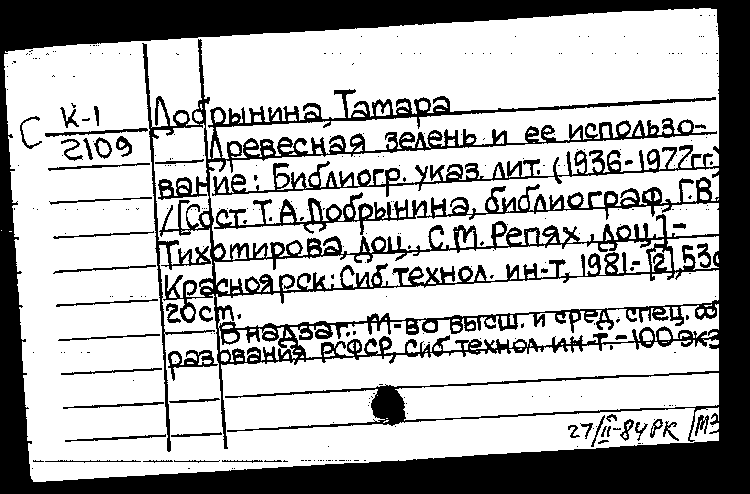 С К-1
2109
Добрынина, Тамара
Древесная зелень и ее использо-
вание: Библиогр. указ. лит. (1936-1977гг.)
/[Сост. Т.А.Добрынина, библиограф, Г.В.
Тихомирова, доц., С.М. Репях, доц.].-
Красноярск: Сиб. технол. ин-т, 1981.- [2], 53с
20см.
В надзаг.: М-во высш. и сред. спец. об
разования РСФСР, Сиб. технол. ин-т.- 100 экз
27/II-84 РК [МЗ